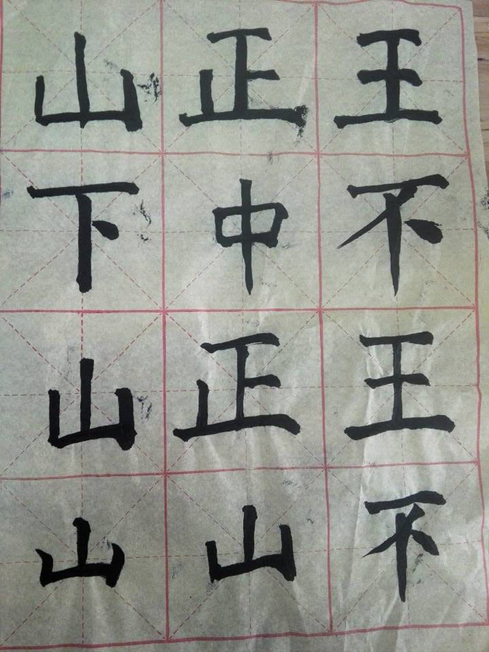 山正王
下中不
山正王
山山不